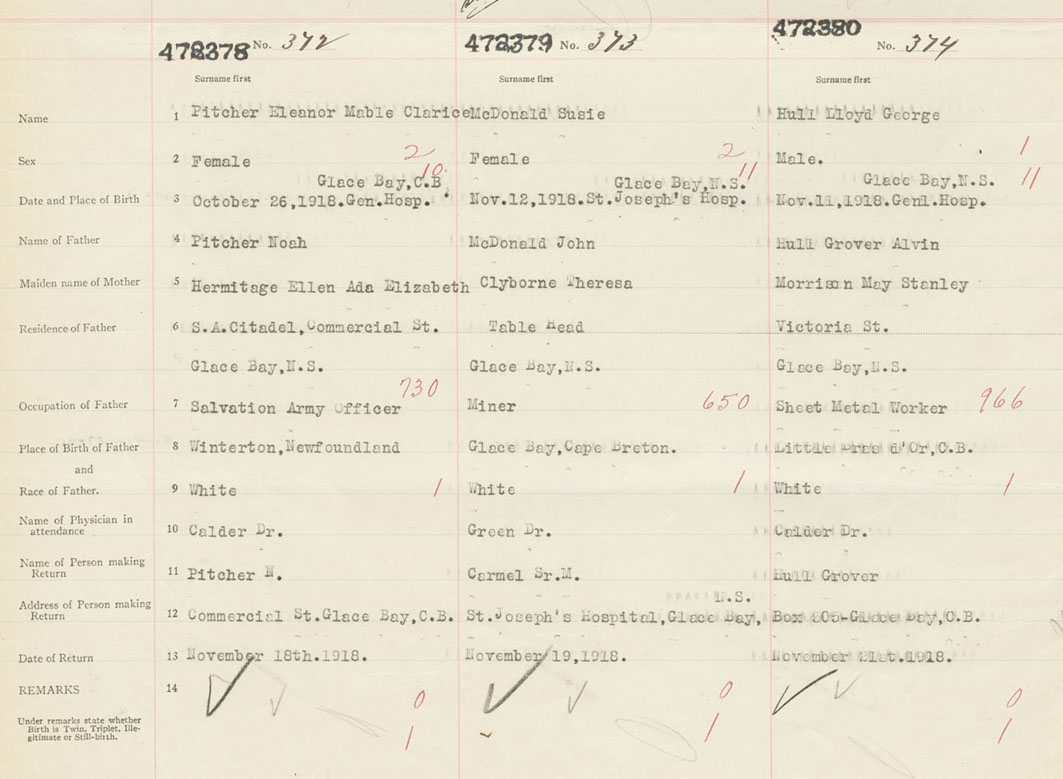 472378 No. 372 472379 No. 373 472380 No. 374
Surname first Surname first Surname first
Name 1 Pitcher Eleanor Mable Clarice McDonald Susie Hull Lloyd George
Sex 2 Female 2 Female 2 Male. 1
Glace Bay,C.B. 10 Glace Bay,N.S. 11 Glace Bay,N.S. 11
Date and Place of Birth 3 October 26,1918.Gen.Hosp. Nov.12,1918.St.Joseph's Hosp. Nov.11,1918.Genl.Hosp.
Name of Father 4 Pitcher Noah McDonald John Hull Grover Alvin
Maiden name of Mother 5 Hermitage Ellen Ada Elizabeth Clyborne Theresa Morrison May Stanley
Residence of Father 6 S.A.Citadel,Commercial St. Table Head Victoria St.
Glace Bay,N.S. Glace Bay,N.S. Glace Bay,N.S.
730 650 966
Occupation of Father 7 Salvation Army Officer Miner Sheet Metal Worker
Place of Birth of Father 8 Winterton,Newfoundland Glace Bay,Cape Breton. Little Bras d'Or,C.B.
and
Race of Father. 9 White 1 White 1 White 1
Name of Physician in
attendance 10 Calder Dr. Green Dr. Calder Dr.
Name of Person making
Return 11 Pitcher N. Carmel Sr.M. Hull Grover
N.S.
Address of Person making
Return 12 Commercial St.Glace Bay,C.B. St.Joseph's Hospital,Glace Bay, Box 505-Glace Bay,C.B.
Date of Return 13 November 18th.1918. November 19,1918. November 21st.1918.
REMARKS 14 0 0 0
Under remarks state whether
Birth is Twin, Triplet, Ille-
gitimate or Still-birth. 1 1 1